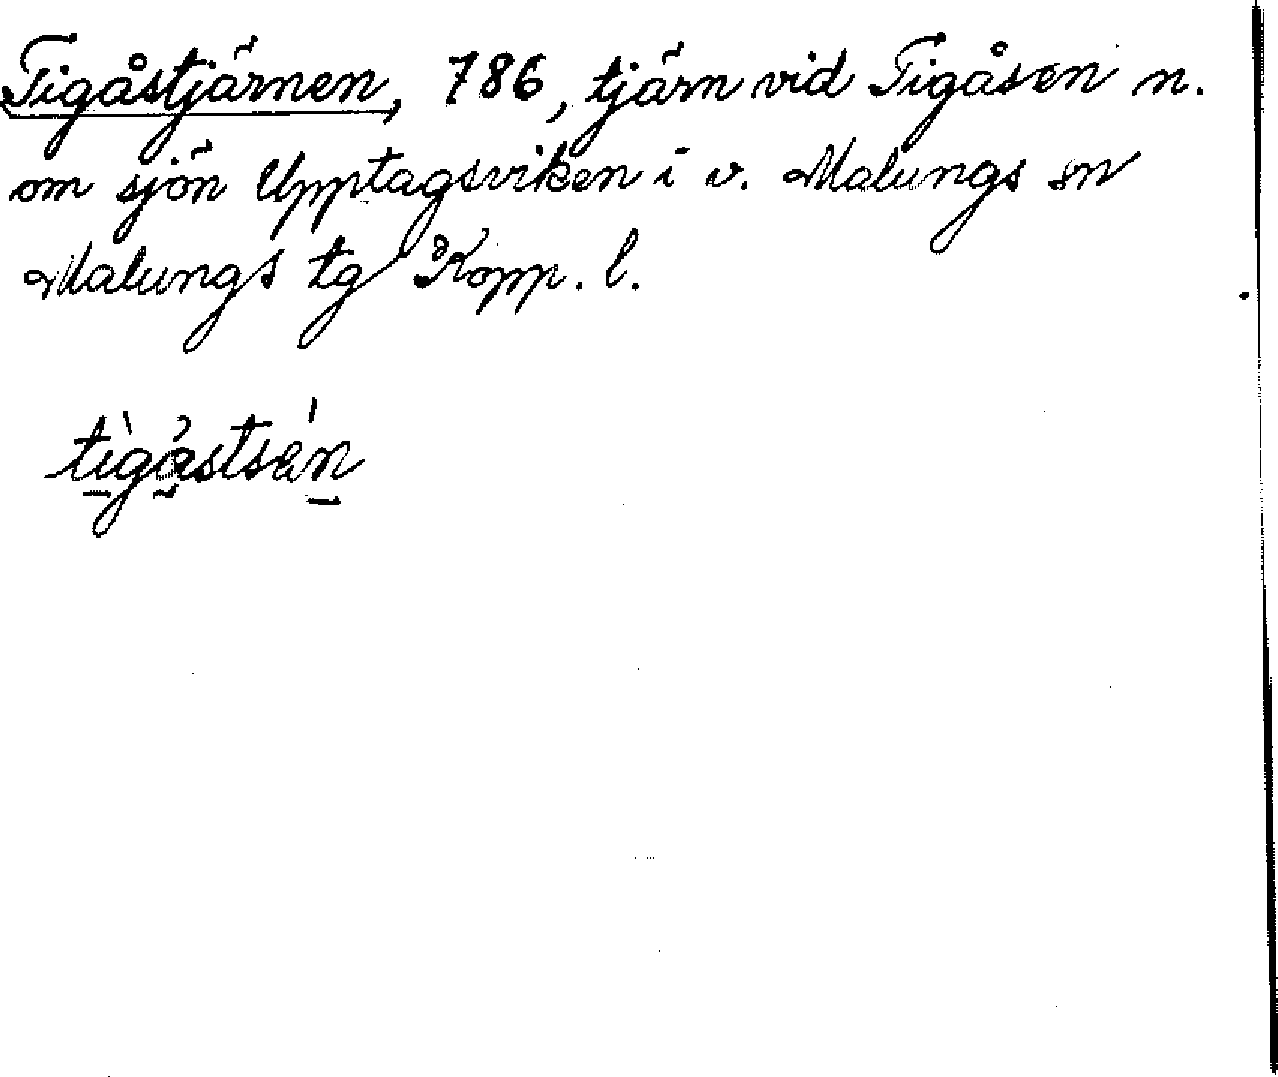 Tigåstjärnen, 786, tjärn vid Tigåsen n.
om sjön Upptagsviken i v. Malungs sn
Malungs tg Kopp. l.
tìgåstsän